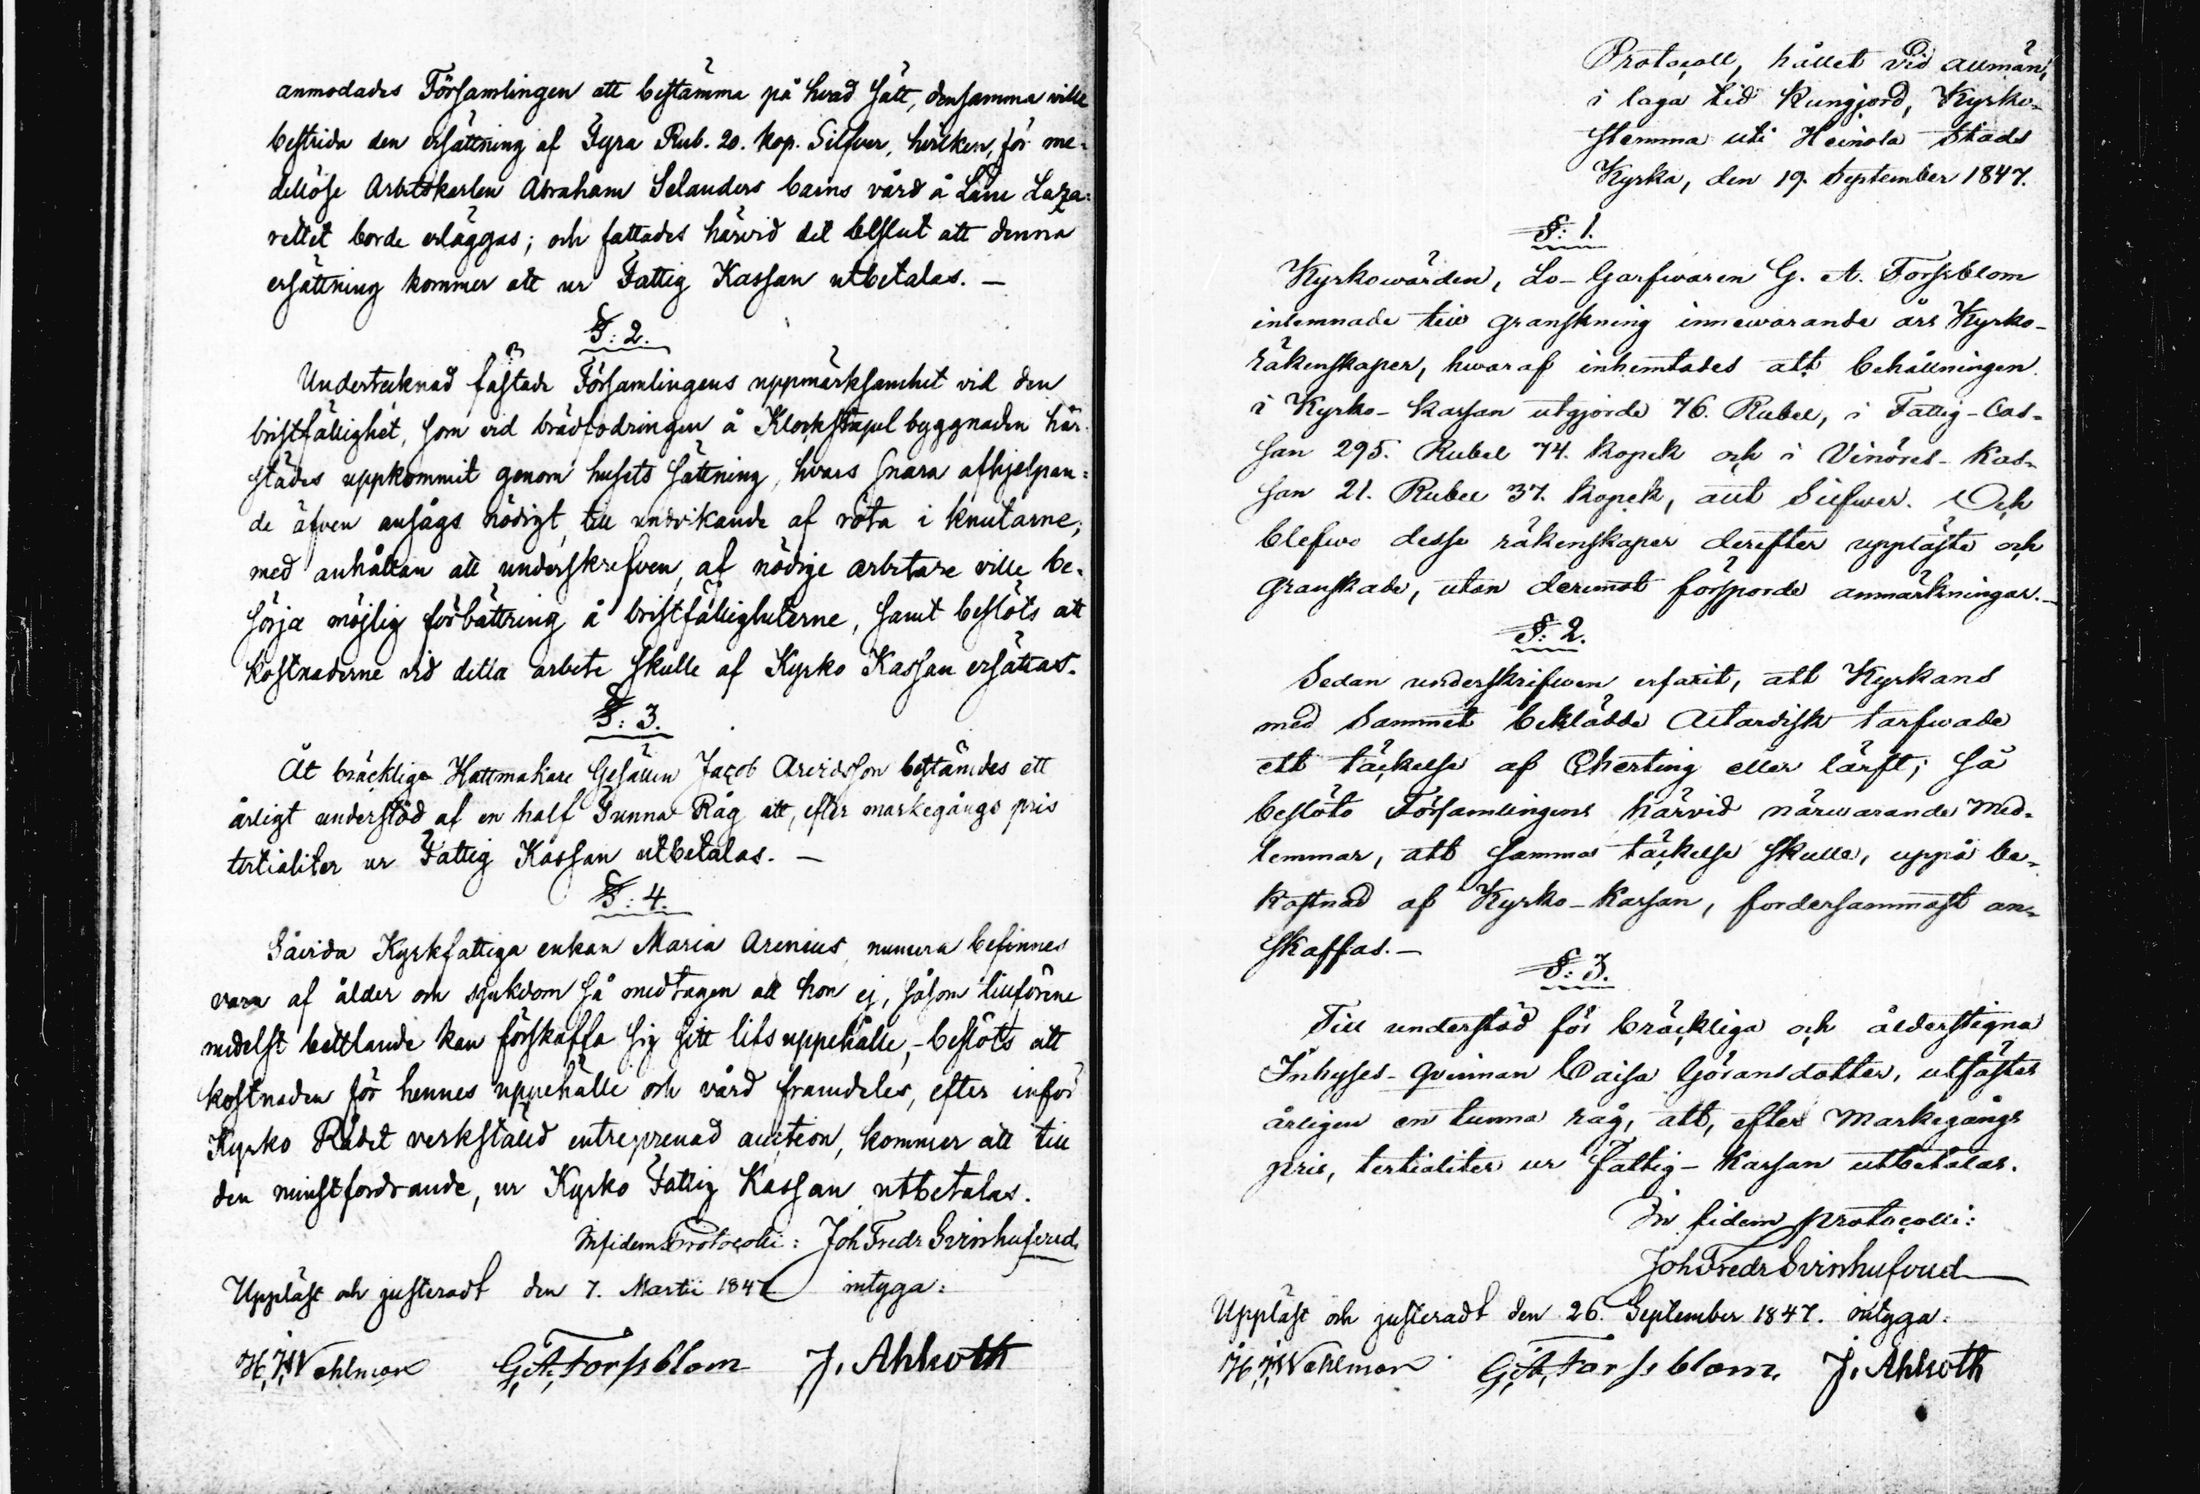 anmodades Församlingen att bestämma på hvad sätt, densamma ville
bestrida den ersättning af Fyra Rub. 20. kop. Silfver, hvilken, för me-
dellöse Arbetskarlen Abraham Selanders barns vård å Läne Laza-
rettet borde erläggas; och fattades härvid det beslut att denna
ersättning kommer att ur Fattig Kassan utbetalas. —
§: 2.
Undertecknad fästade Församlingens uppmärksamhet vid den
bristfällighet, som vid brädfodringen å Klockstapel byggnaden här-
städes uppkommit genom husets sättning, hvars snara afhjelpan-
de äfven ansågs nödigt, till undvikande af röta i knutarne;
med anhållan att underskrefven, af nödige arbetare ville be-
sörja möjlig förbättring å bristfälligheterne, samt beslöts att
kostnaderne vid detta arbete skulle af Kyrko Kassan ersättas.
§: 3.
Åt bräcklige Hattmakare Gesällen Jacob Arvidsson bestämdes ett
årligt understöd af en half Tunna Råg att, efter markegångs pris
tertialiter ur Fattig Kassan utbetalas. —
§: 4.
Såvida Kyrkfattiga enkan Maria Arenius, numera befinnes
vara af ålder och sjukdom så medtagen att hon ej, såsom tillförene
medelst bettlande kan förskaffa sig sitt lifsuppehälle, - beslöts att
kostnaden för hennes uppehälle och vård framdeles, efter inför
Kyrko Rådet verkställd entreprenad auction, kommer att till
den minstfordrande, ur Kyrko Fattig Kassan utbetalas.
In fidem Protocolli: Joh Fredr Svinhufvud
Uppläst och justeradt den 7. Martii 1847 intyga:
H. J. Wehlman G. A. Forssblom J. Ahlroth
Protocoll, hållet vid allmän,
i laga tid kungjord, Kyrko-
stemma uti Heinola Stads
Kyrka, den 19. September 1847.
§: 1.
Kyrkowärden, Lo-Garfwaren G. A. Forssblom
inlemnade till granskning innewarande års Kyrko-
räkenskaper, hwaraf inhemtades att behållningen
i Kyrko-kassan utgjorde 76. Rubel, i Fattig-Cas-
san 295. Rubel 74. kopek och i Vinöres-Kas-
san 21. Rubel 37. kopek, allt Silfwer. Och
blefwo desse räkenskaper derefter uppläste och
granskade, utan deremot försporde anmärkningar. —
§: 2.
Sedan underskrifwen erfarit, att Kyrkans
med Sammet beklädde Altardisk tarfwade
ett täckelse af Cherting eller lärft; så
beslöto Församlingens härvid närwarande Med-
lemmar, att samma täckelse skulle, uppå be-
kostnad af Kyrko-Kassan, fordersammast an-
skaffas. —
§: 3.
Till understöd för bräckliga och ålderstigna
Inhyses-qvinnan Caisa Göransdotter, utfästes
årligen en tunna råg, att, efter Markegångs
pris, tertialiter ur Fattig-Kassan utbetalas.
In fidem protocolli:
Joh Fredr Svinhufvud
Uppläst och justeradt den 26. September 1847. intyga:
H. J. Wehlman G. A. Forssblom. J. Ahlroth